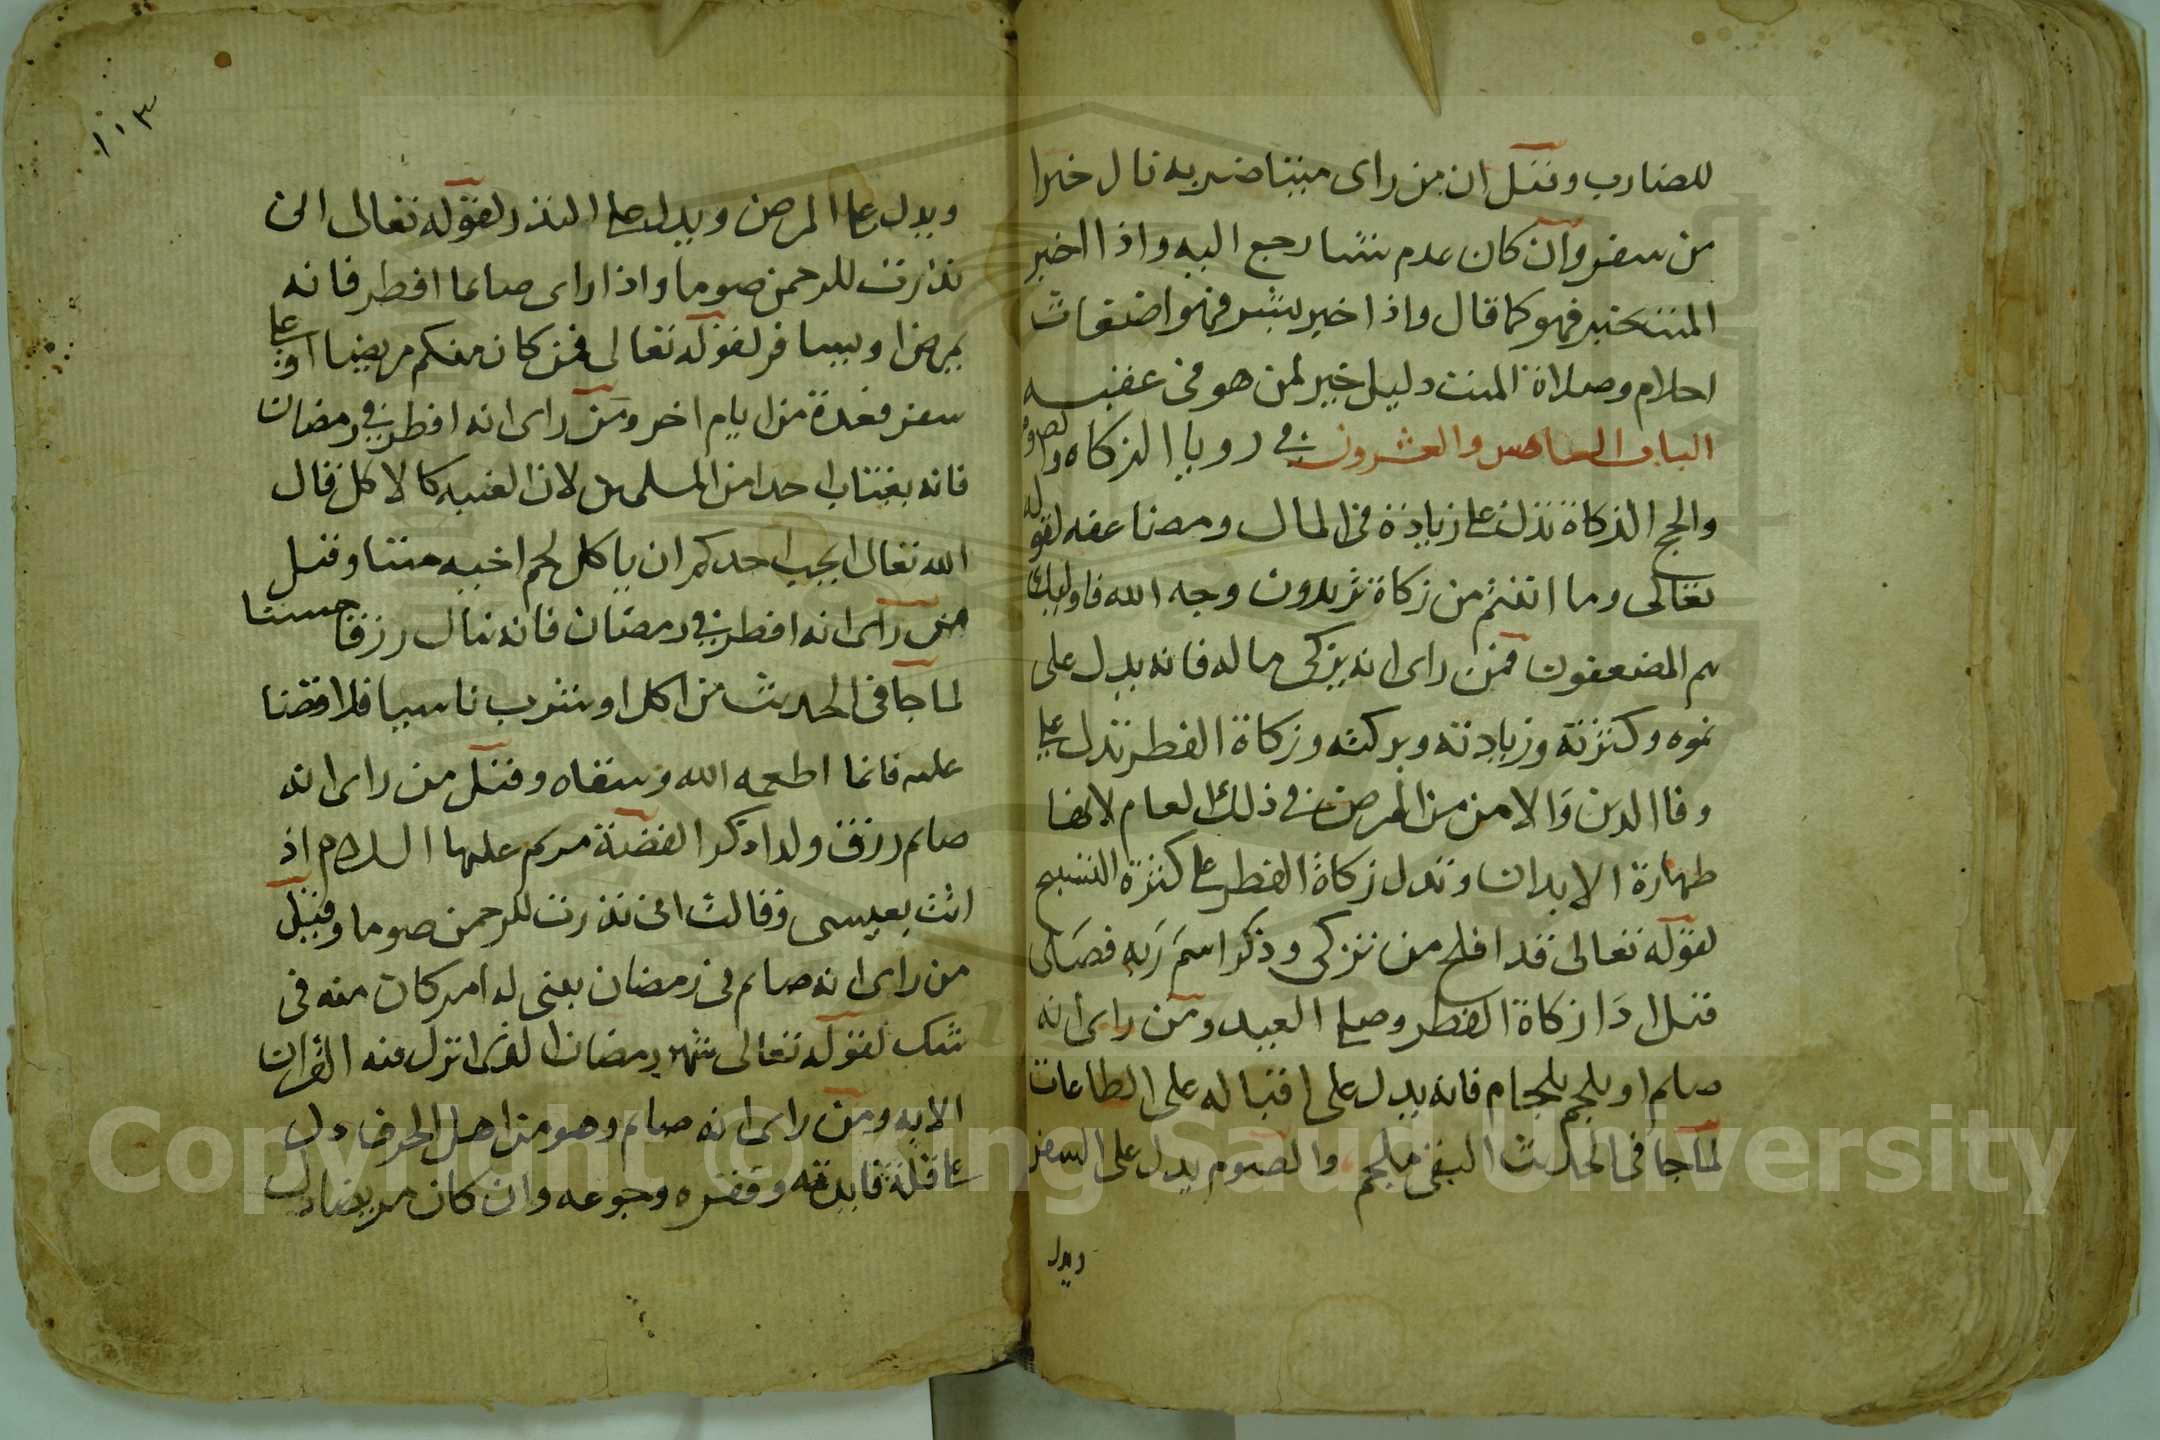 للضارب وقيل ان من راى ميتا ضربه نال خيرا
من سفر وان كان عدم شيا رجع اليه واذا اخبر
المستخبر فهو كما قال واذا اخبر بشر فهو اضغاث
احلام وصلاة الميت دليل خير لمن هو في عقبه
الباب الخامس والعشرون في رويا الزكاه والصوم
والحج الزكاة تدل على زيادة في المال ومضاعفه لقوله
تعالى وما اتيتم من زكاة تريدون وجه الله فاوليك
هم المضعفون فمن راى انه يزكى ماله فانه يدل على
نموه وكثرته وزيادته وبركته وزكاة الفطر تدل على
وفا الدين والامن من المرض في ذلك العام لانها
طهارة الابدان وتدل زكاة الفطر على كثرة التسبيح
لقوله تعالى قد افلح من تزكى وذكر اسم ربه فصلى
قيل ادا زكاة الفطر وصلى العيد ومن راى انه
صايم او يلجم بلجام فانه يدل على اقباله على الطاعات
لما جا في الحديث التقي ملجم والصوم يدل على السفر
ويدل
١١٣
ويدل على المرض ويدل على النذر لقوله تعالى اني
نذرت للرحمن صوما واذا راى صايما افطر فانه
يمرض او يسافر لقوله تعالى فمن كان منكم مريضا او على
سفر فعدة من ايام اخر ومن راى انه افطر في رمضان
فانه يغتاب احدا من المسلمين لان الغيبه كالاكل قال
الله تعالى ايحب احدكم ان ياكل لحم اخيه ميتا وقيل
من راى انه افطر في رمضان فانه ينال رزقا حسنا
لما جا في الحديث من اكل او شرب ناسيا فلا قضا
عليه فانما اطعمه الله وسقاه وقيل من راى انه
صايم رزق ولدا ذكرا لقصة مريم عليها السلام اذ
اتت بعيسى وقالت اني نذرت للرحمن صوما وقيل
من راى انه صايم في رمضان يعنى له امر كان منه في
شك لقوله تعالى شهر رمضان الذى انزل فيه القران
الايه ومن راى انه صايم وهو من اهل الحرف دل
على قلة فايدته وفقره وجوعه وان كان مريضا دل
Copyright © King Saud University